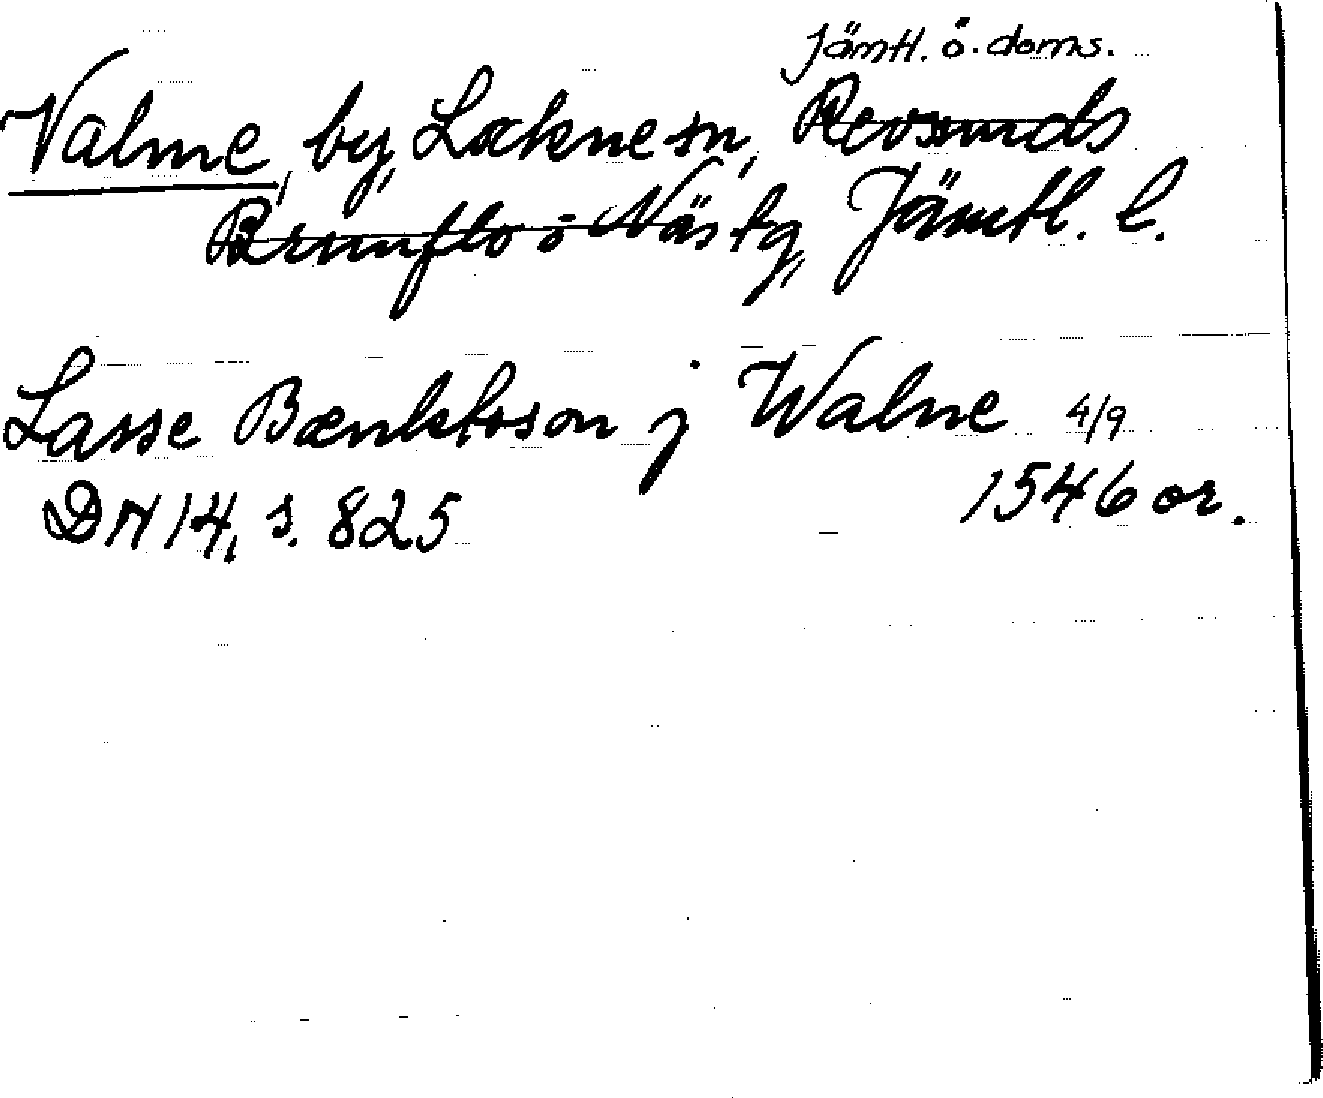 Jämtl. ö. doms.
Valne, by, Lockne sn, Revsunds
Brunflo o Näs tg, Jämtl. l.
Lasse Bænktsson j Walne 4/9
DN 14, s. 825 1546 or.